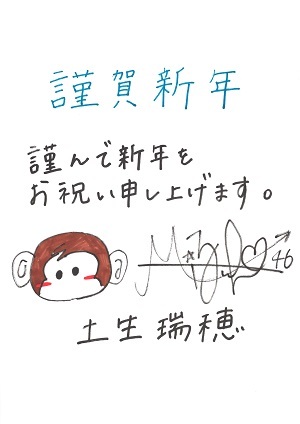 謹賀新年
謹んで新年を
お祝い申し上げます。
46
土生瑞穂